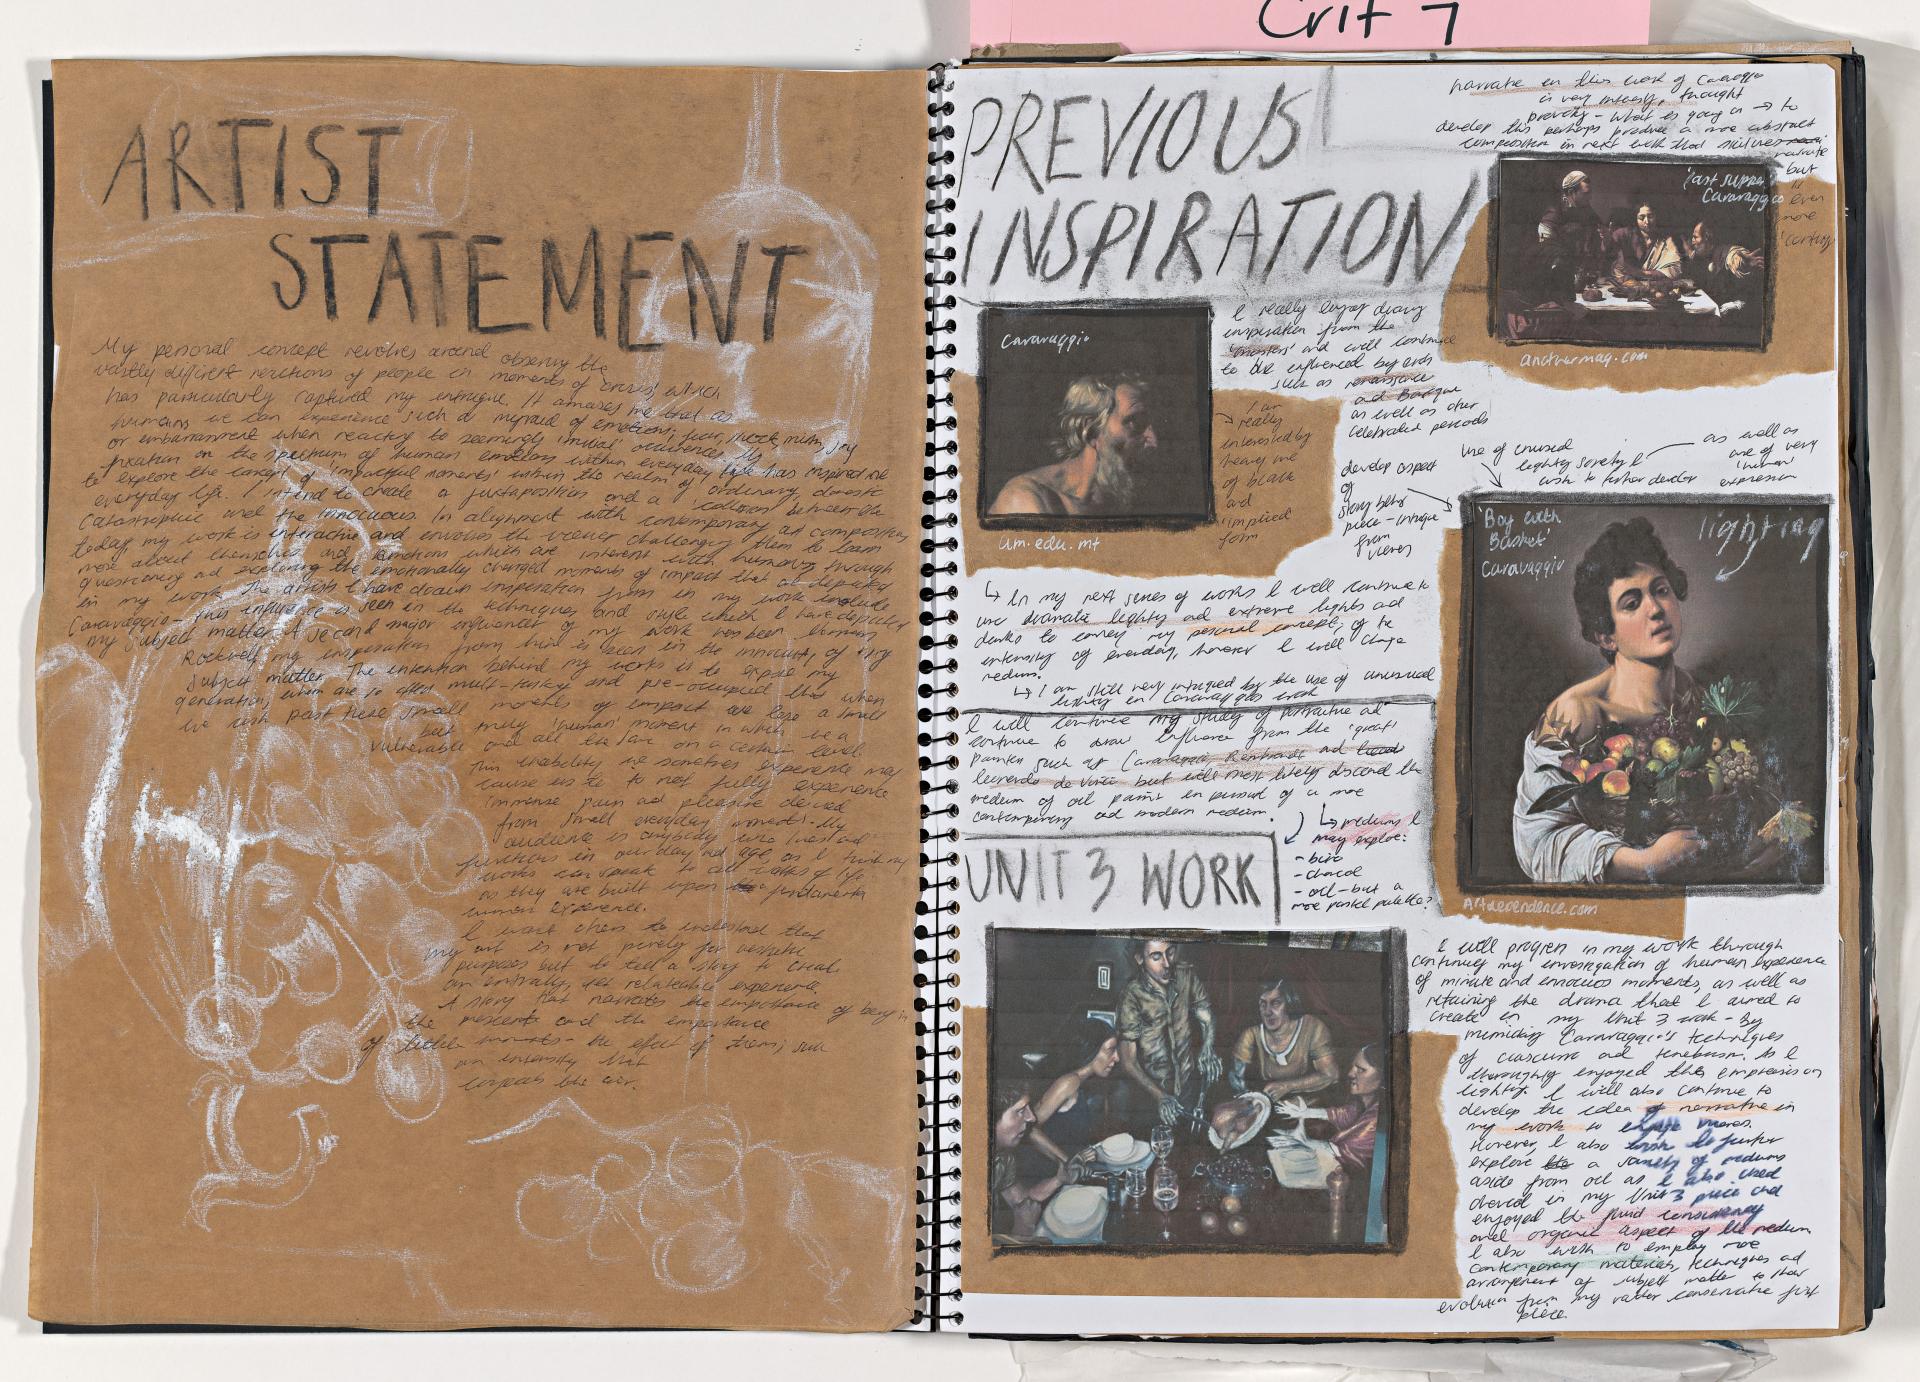 Crit 7
ARTIST
STATEMENT
My personal concept revolves around observing the
vastly different reactions of people in moments of crisis, which
has particularly captured my intrigue. It amazes me that as
humans we can experience such a myraid of emotions; fear, shock, joy
or embarrassment when reacting to seemingly 'trivial' occurences. My
fixation on the spectrum of human emotions within everyday life has inspired me
to explore the concept of 'impactful moments' within the realm of ordinary, domestic
everyday life. I intend to create a juxtaposition and a 'collision' between the
Catastrophic and the innocuous. In alignment with contemporary art composition
today my work is interactive and involves the viewer challenging them to learn
more about themselves and emotions which are inherent with humans through
questioning and exploring the emotionally charged moments of impact that are depicted
in my work. The artists I have drawn inspiration from in my work include
Caravaggio - this influence is seen in the techniques and style which I have depicted
my subject matter. A second major influencer of my work has been Norman
Rockwell, my inspiration from him is seen in the innocuity of my
subject matter. The intention behind my works is to expose my
generation, whom are so often multi-tasking and pre-occupied that when
we rush past these small moments of impact we lose a small
but truly 'human' moment in which we a
vulnerable and all the same on a certain level.
This inability we sometimes experience may
cause us to to not fully experience
immense pain and pleasure derived
from small everyday moments. My
audience is anybody who lives and
functions in our day and age, as I think my
works can speak to all walks of life
as they are built upon fundamental
human experience.
I want others to understand that
my art is not purely for aesthetic
purposes but to tell a story to create
an enthralling, yet relateable experience.
A story that narrates the importance of being in
the present and the importance
of little moments - the effect of them; such
an intensity that
PREVIOUS
INSPIRATION
narrative in this work of Caravaggio
is very intensly, thought
provoking - what is going on → to
develop this perhaps produce a more abstract
composition in next with that narrative
but
is
even
more
'Last supper'
Caravaggio
anothermag.com
Caravaggio
um.edu.mt
I really enjoy drawing
inspiration from the
'masters' and will continue
to be influenced by eras
such as renaissance
and Baroque
as well as other
celebrated periods
I am
really
interested by
heavy use
of black
and
'implied'
form
develop aspect
of
story being
piece - intrigue
from
viewers
Use of unusual
lighting something I
wish to further develop
as well as
use of very
'human'
expression
'Boy with
Basket'
Caravaggio
lighting
Artdependence.com
↳ In my next series of works I will continue to
use dramatic lighting and extreme lights and
darks to convey my personal concept, of the
intensity of everyday, however I will change
medium.
↳ I am still very intrigued by the use of unusual
lighting in Caravaggios work
I will continue my study of portraiture and
continue to draw influence from the 'great'
painters such as Caravaggio, Rembrandt and
leonardo da Vinci but will most likely discard the
medium of oil paints in pursuit of a more
contemporary and modern medium.
↳ mediums I
may explore:
- biro
- charcoal
- oil - but a
more pastel palette?
UNIT 3 WORK
I will progress in my work through
continuing my investigation of human experience
of minute and innocuous moments, as well as
retaining the drama that I aimed to
create in my Unit 3 work - by
mimicking Caravaggio's techniques
of ciascuro and tenebrism. As I
thoroughly enjoyed this emphasis on
lighting. I will also continue to
develop the idea of narrative in
my work to engage viewers.
However, I also wish to further
explore a variety of mediums
aside from oil as I also used
charcoal in my Unit 3 piece and
enjoyed the fluid consistency
and organic aspect of the medium
I also wish to employ more
contemporary materials, techniques and
arrangement of subject matter to show
evolution from my rather conservative first
piece.